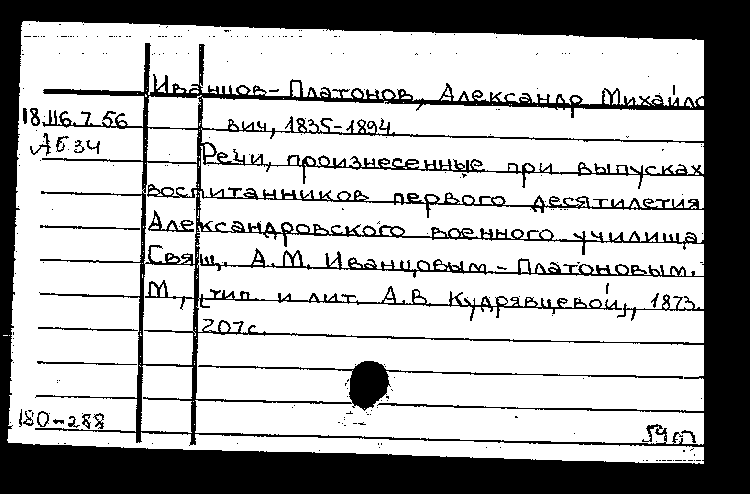 Иванцов-Платонов, Александр Михайло
вич, 1835-1894.
18.116.7.56
АБ 34
Речи, произнесенные при выпусках
воспитанников первого десятилетия
Александровского военного училища.
Свящ. А.М. Иванцовым-Платоновым.
М., [тип. и лит. А.В. Кудрявцевой], 1873.
207 с.
180-288